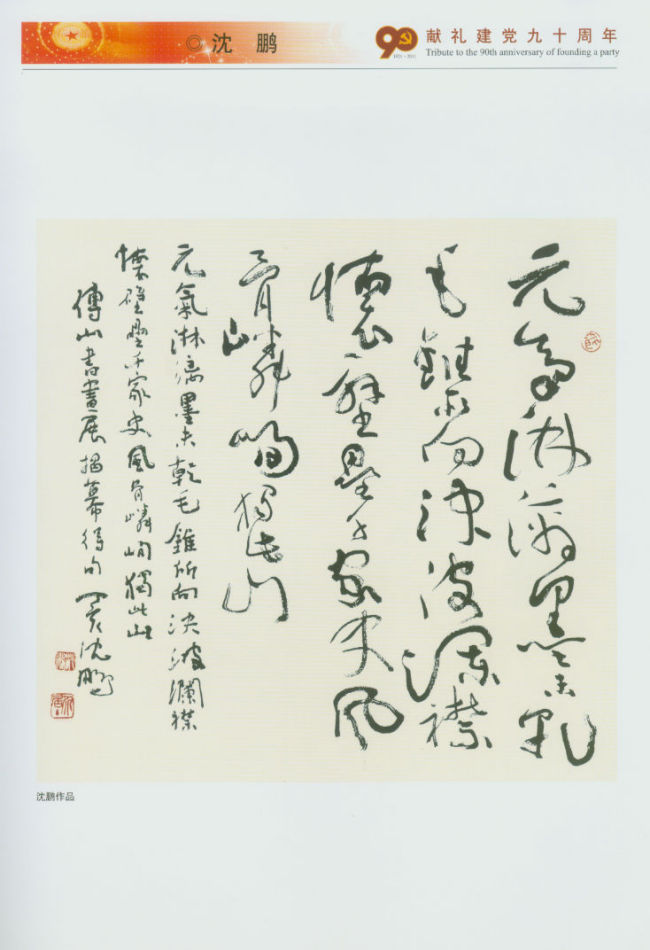 ◎ 沈 鹏
90
献礼建党九十周年
1921-2011
Tribute to the 90th anniversary of founding a party
元氣淋漓墨未乾
毛錐所向決波瀾襟
懷壁壘千家史風
骨嶙峋獨此山
元氣淋漓墨未乾毛錐所向決波瀾襟
懷壁壘千家史風骨嶙峋獨此山
傅山書畫展揭幕得句 丁亥沈鵬
沈鹏作品